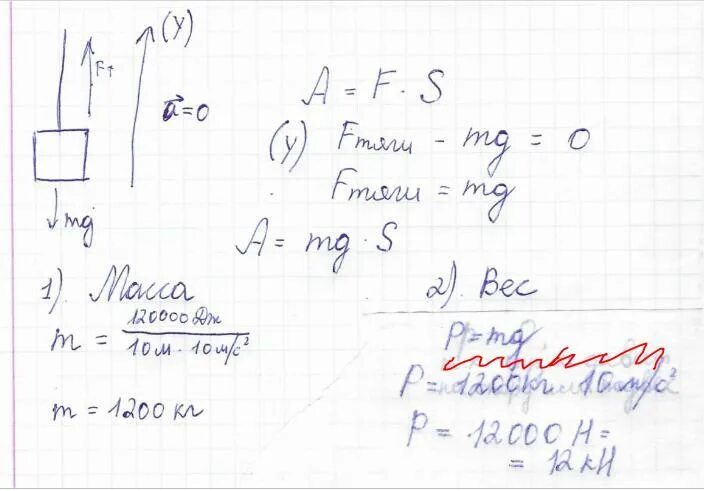 (y)
Fт
a⃗=0
mg
A = F · S
(y) Fтяги - mg = 0
Fтяги = mg
A = mg · S
1). Масса
m = 120000 Дж / 10м · 10м/с²
m = 1200 кг
2). Вес
P = mg
P = 1200кг 10м/с²
P = 12000 Н =
= 12кН